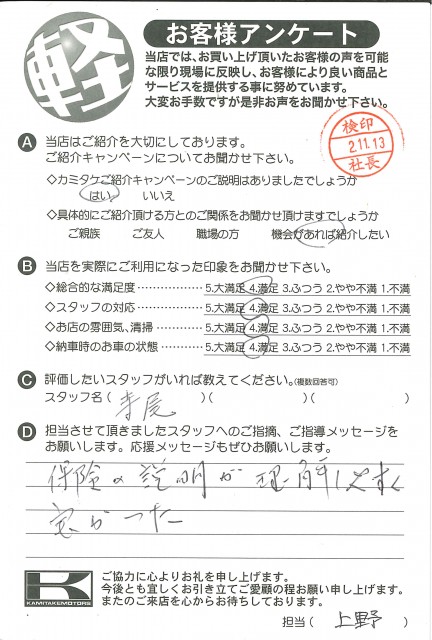 軽
お客様アンケート
当店では、お買い上げ頂いたお客様の声を可能
な限り現場に反映し、お客様により良い商品と
サービスを提供する事に努めています。
大変お手数ですが是非お声をお聞かせ下さい。
検印
2.11.13
社長
A 当店はご紹介を大切にしております。
ご紹介キャンペーンについてお聞かせ下さい。
◇カミタケご紹介キャンペーンのご説明はありましたでしょうか
はい いいえ
◇具体的にご紹介頂ける方とのご関係をお聞かせ頂けますでしょうか
ご親族 ご友人 職場の方 機会があれば紹介したい
B 当店を実際にご利用になった印象をお聞かせ下さい。
◇総合的な満足度 5.大満足 4.満足 3.ふつう 2.やや不満 1.不満
◇スタッフの対応 5.大満足 4.満足 3.ふつう 2.やや不満 1.不満
◇お店の雰囲気、清掃 5.大満足 4.満足 3.ふつう 2.やや不満 1.不満
◇納車時のお車の状態 5.大満足 4.満足 3.ふつう 2.やや不満 1.不満
C 評価したいスタッフがいれば教えてください。(複数回答可)
スタッフ名( 寺尾 )( )( )
D 担当させて頂きましたスタッフへのご指摘、ご指導メッセージを
お願いします。応援メッセージもぜひお願いします。
保険の説明が理解しやすく
良かった
K
KAMITAKEMOTORS
ご協力に心よりお礼を申し上げます。
今後とも宜しくお引き立てご愛顧の程お願い申し上げます。
またのご来店を心からお待ちしております。
担当( 上野 )